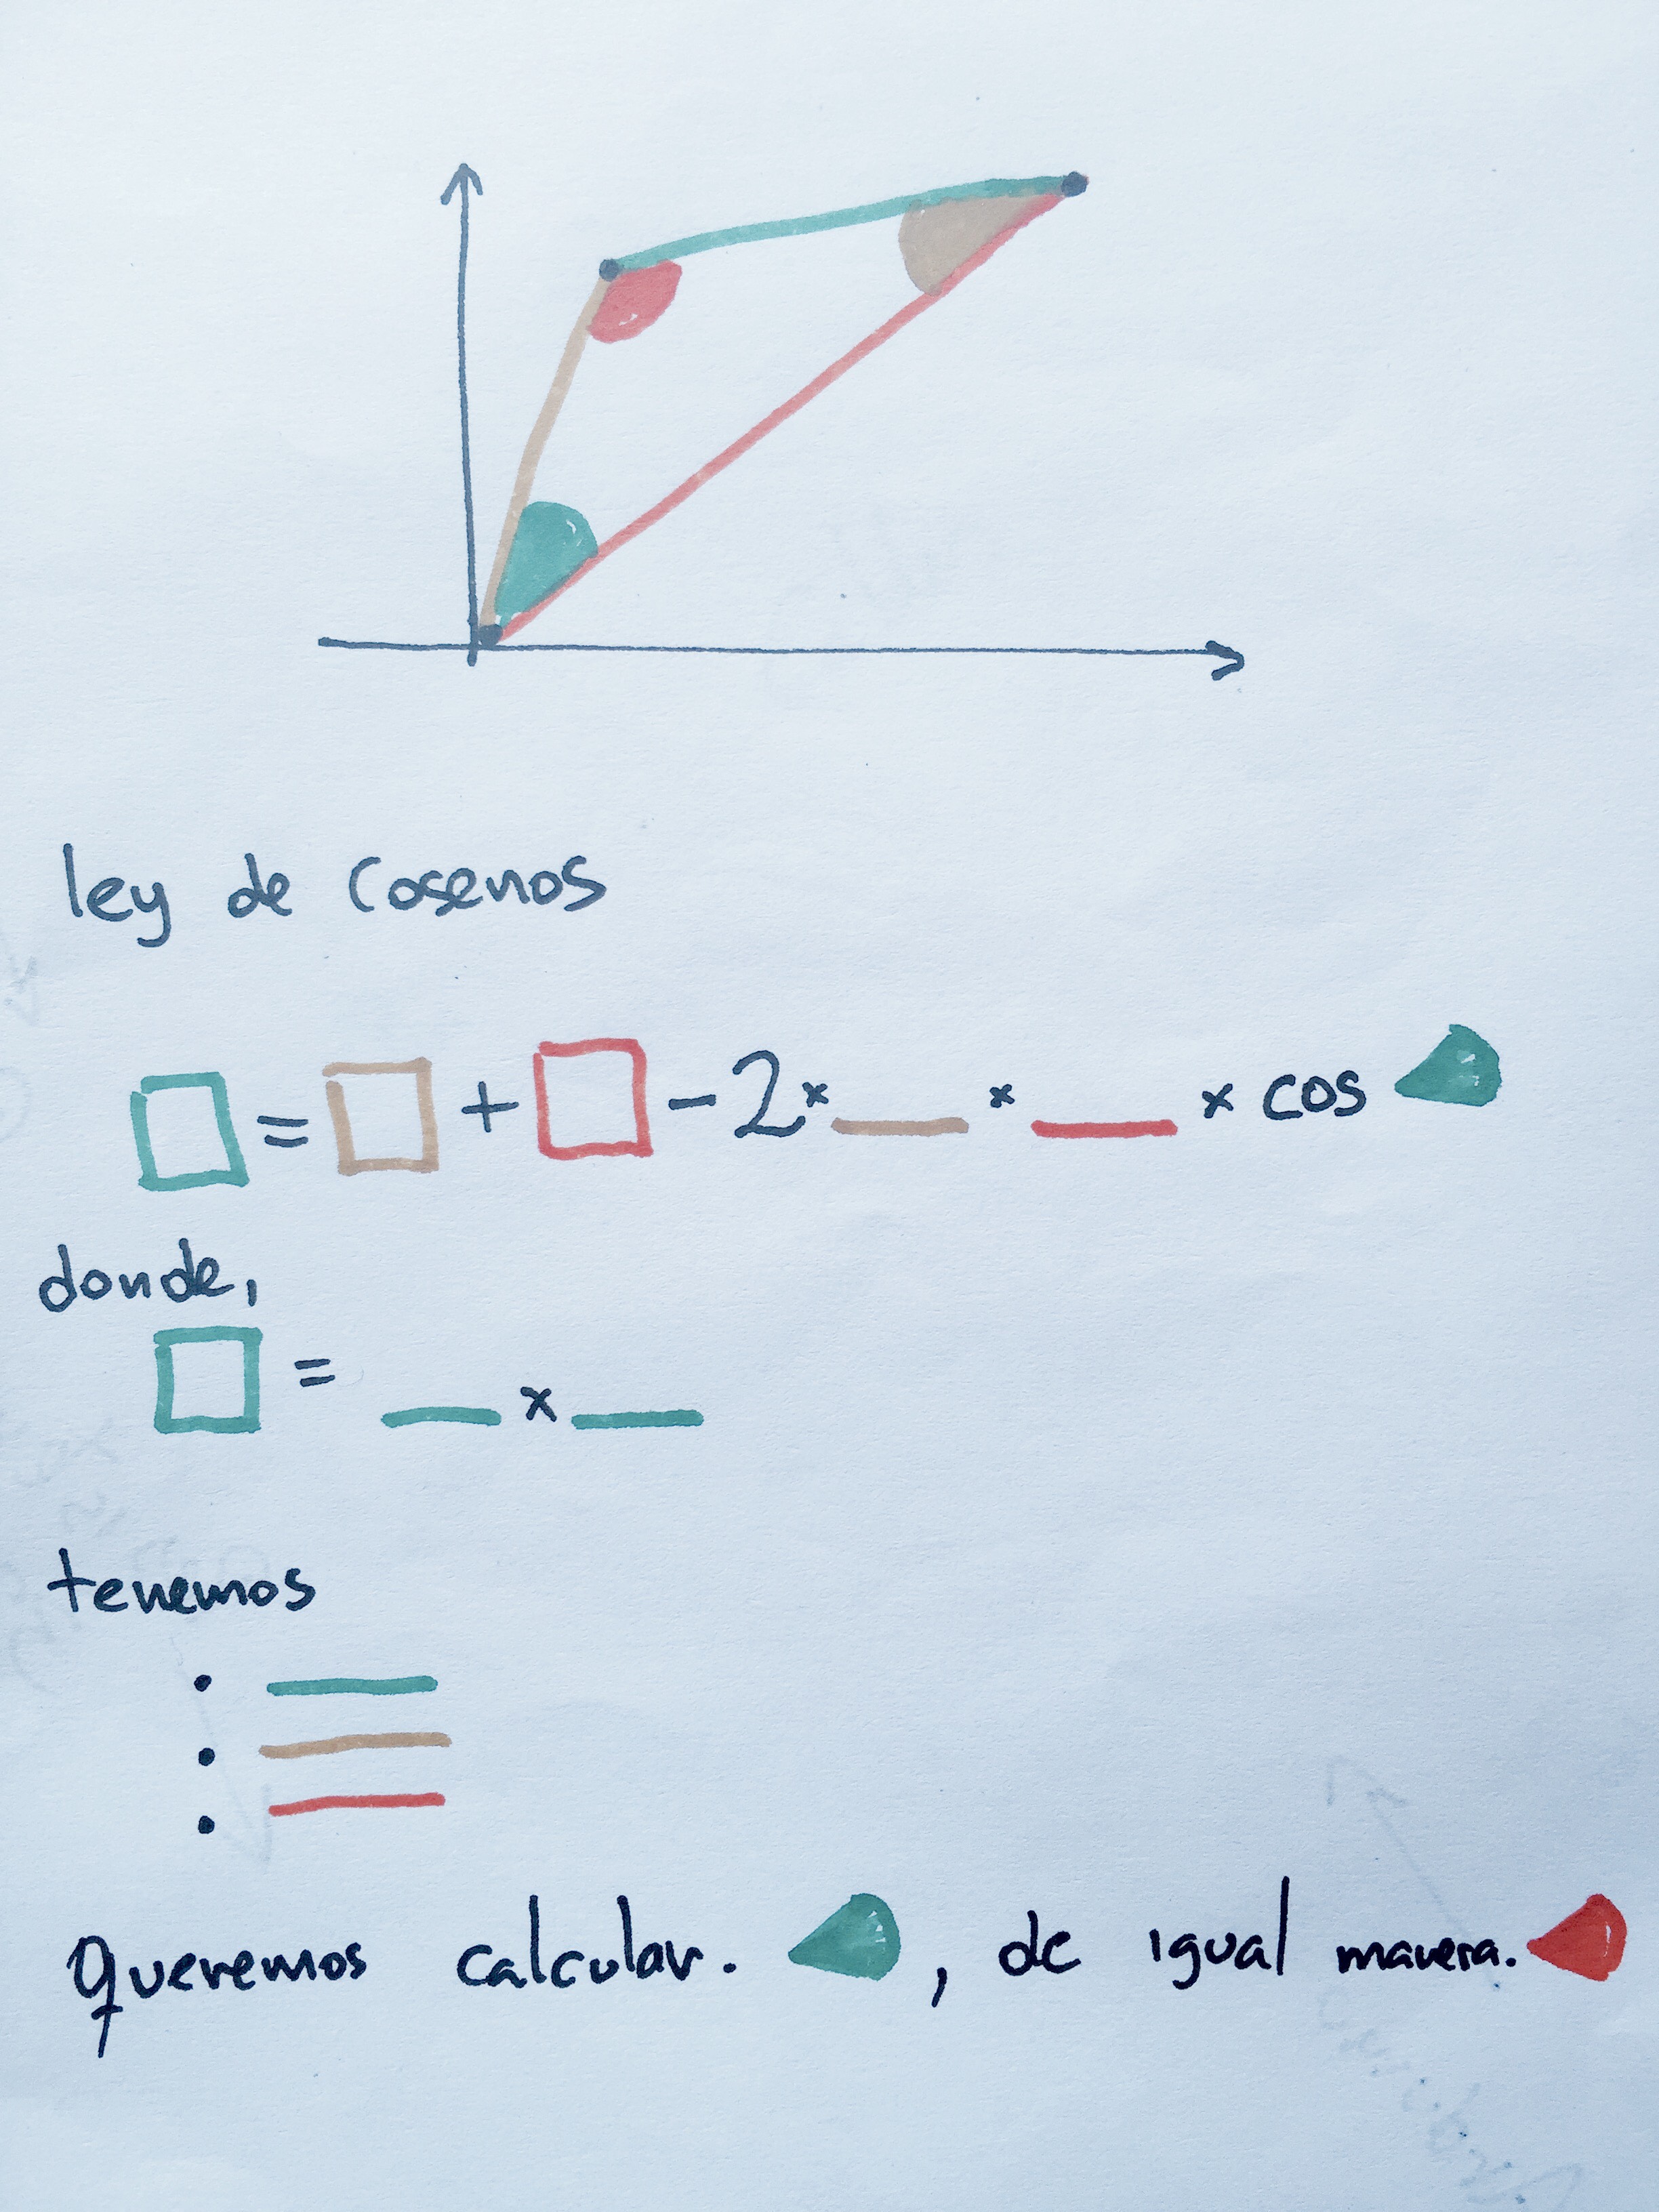 ley de cosenos
□ = □ + □ - 2 × __ × __ × cos
donde,
□ = __ × __
tenemos
Queremos calcular. , de igual manera.